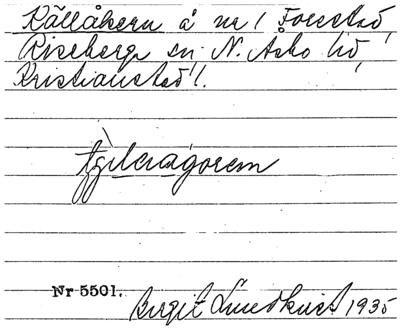 Källåkern å nr 1 Forestad,
Riseberga sn. N. Åsbo hd,
Kristianstad l.
Nr 5501.
Birgit Lundkvist 1935